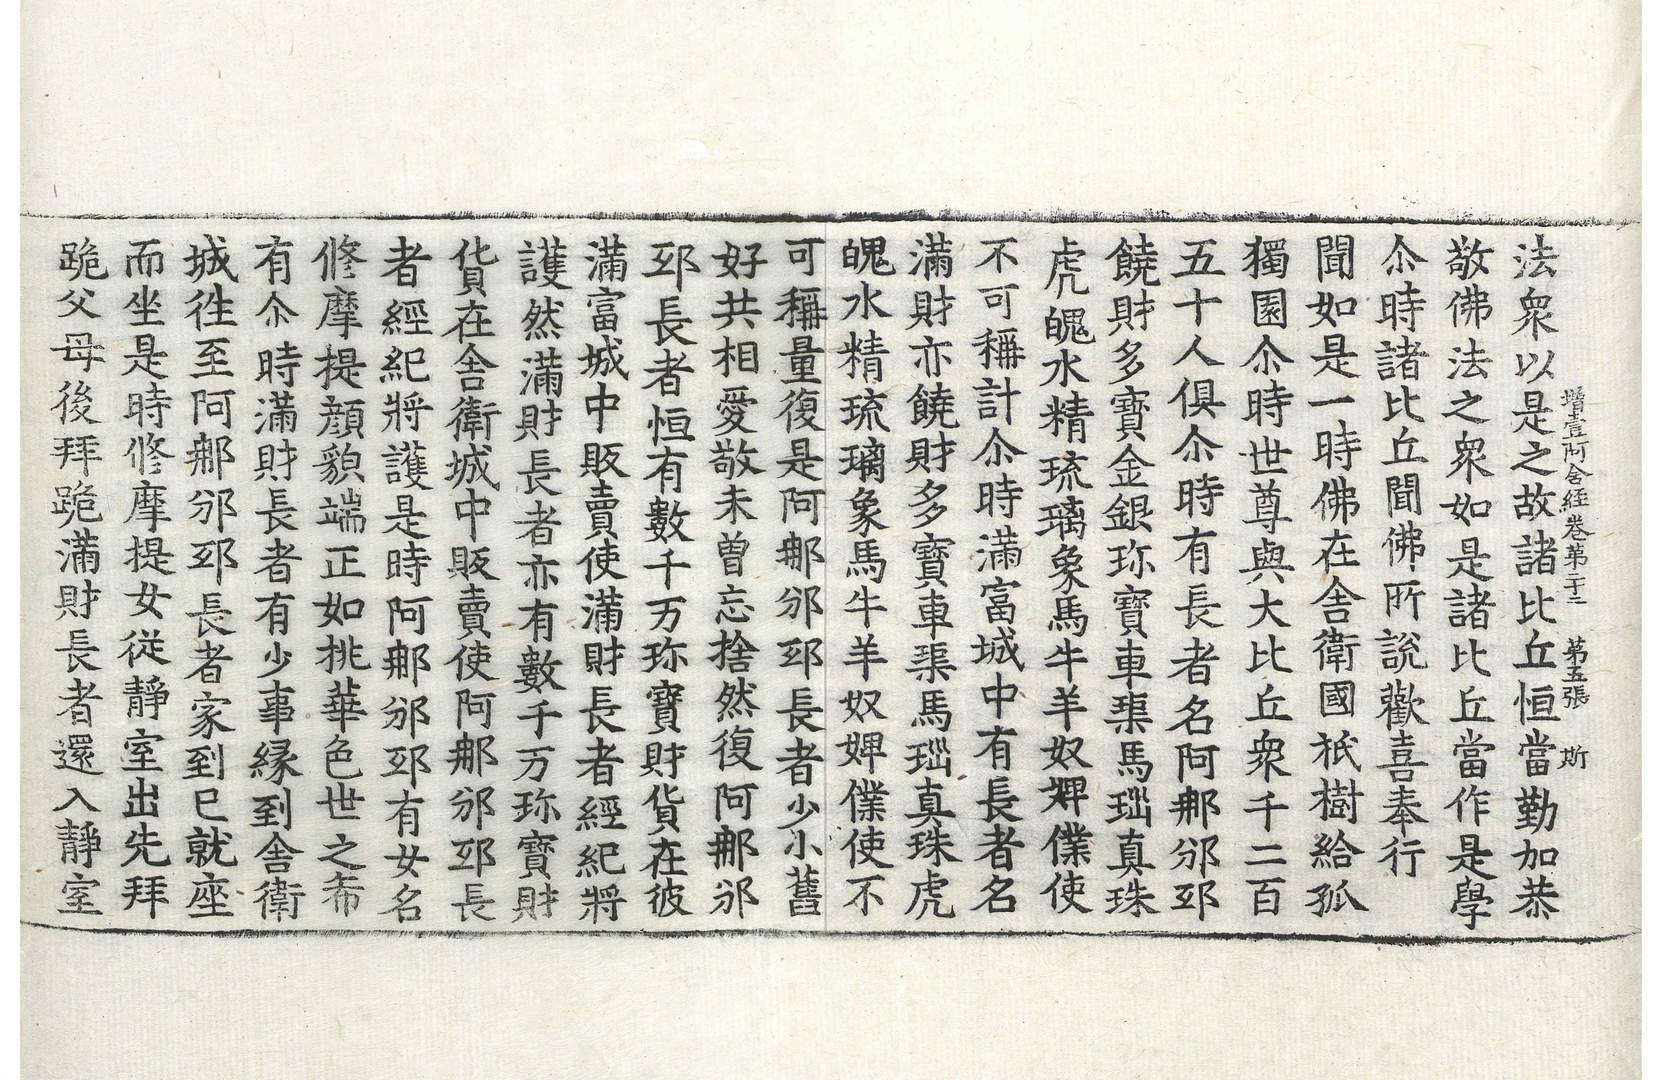 法衆以是之故諸比丘恒當勤加恭
增壹阿含經卷第二十二 第五張 斯
敬佛法之衆如是諸比丘當作是學
尒時諸比丘聞佛所說歡喜奉行
聞如是一時佛在舍衛國祇樹給孤
獨園尒時世尊與大比丘衆千二百
五十人俱尒時有長者名阿那邠邸
饒財多寶金銀珎寶車𤦲馬瑙真珠
虎魄水精琉璃象馬牛羊奴婢僕使
不可稱計尒時滿富城中有長者名
滿財亦饒財多寶車𤦲馬瑙真珠虎
魄水精琉璃象馬牛羊奴婢僕使不
可稱量復是阿那邠邸長者少小舊
好共相愛敬未曾忘捨然復阿那邠
邸長者恒有數千万珎寶財貨在彼
滿富城中販賣使滿財長者經紀將
護然滿財長者亦有數千万珎寶財
貨在舍衛城中販賣使阿那邠邸長
者經紀將護是時阿那邠邸有女名
修摩提顔貌端正如桃華色世之希
有尒時滿財長者有少事緣到舍衛
城往至阿那邠邸長者家到已就座
而坐是時修摩提女從靜室出先拜
跪父母後拜跪滿財長者還入靜室